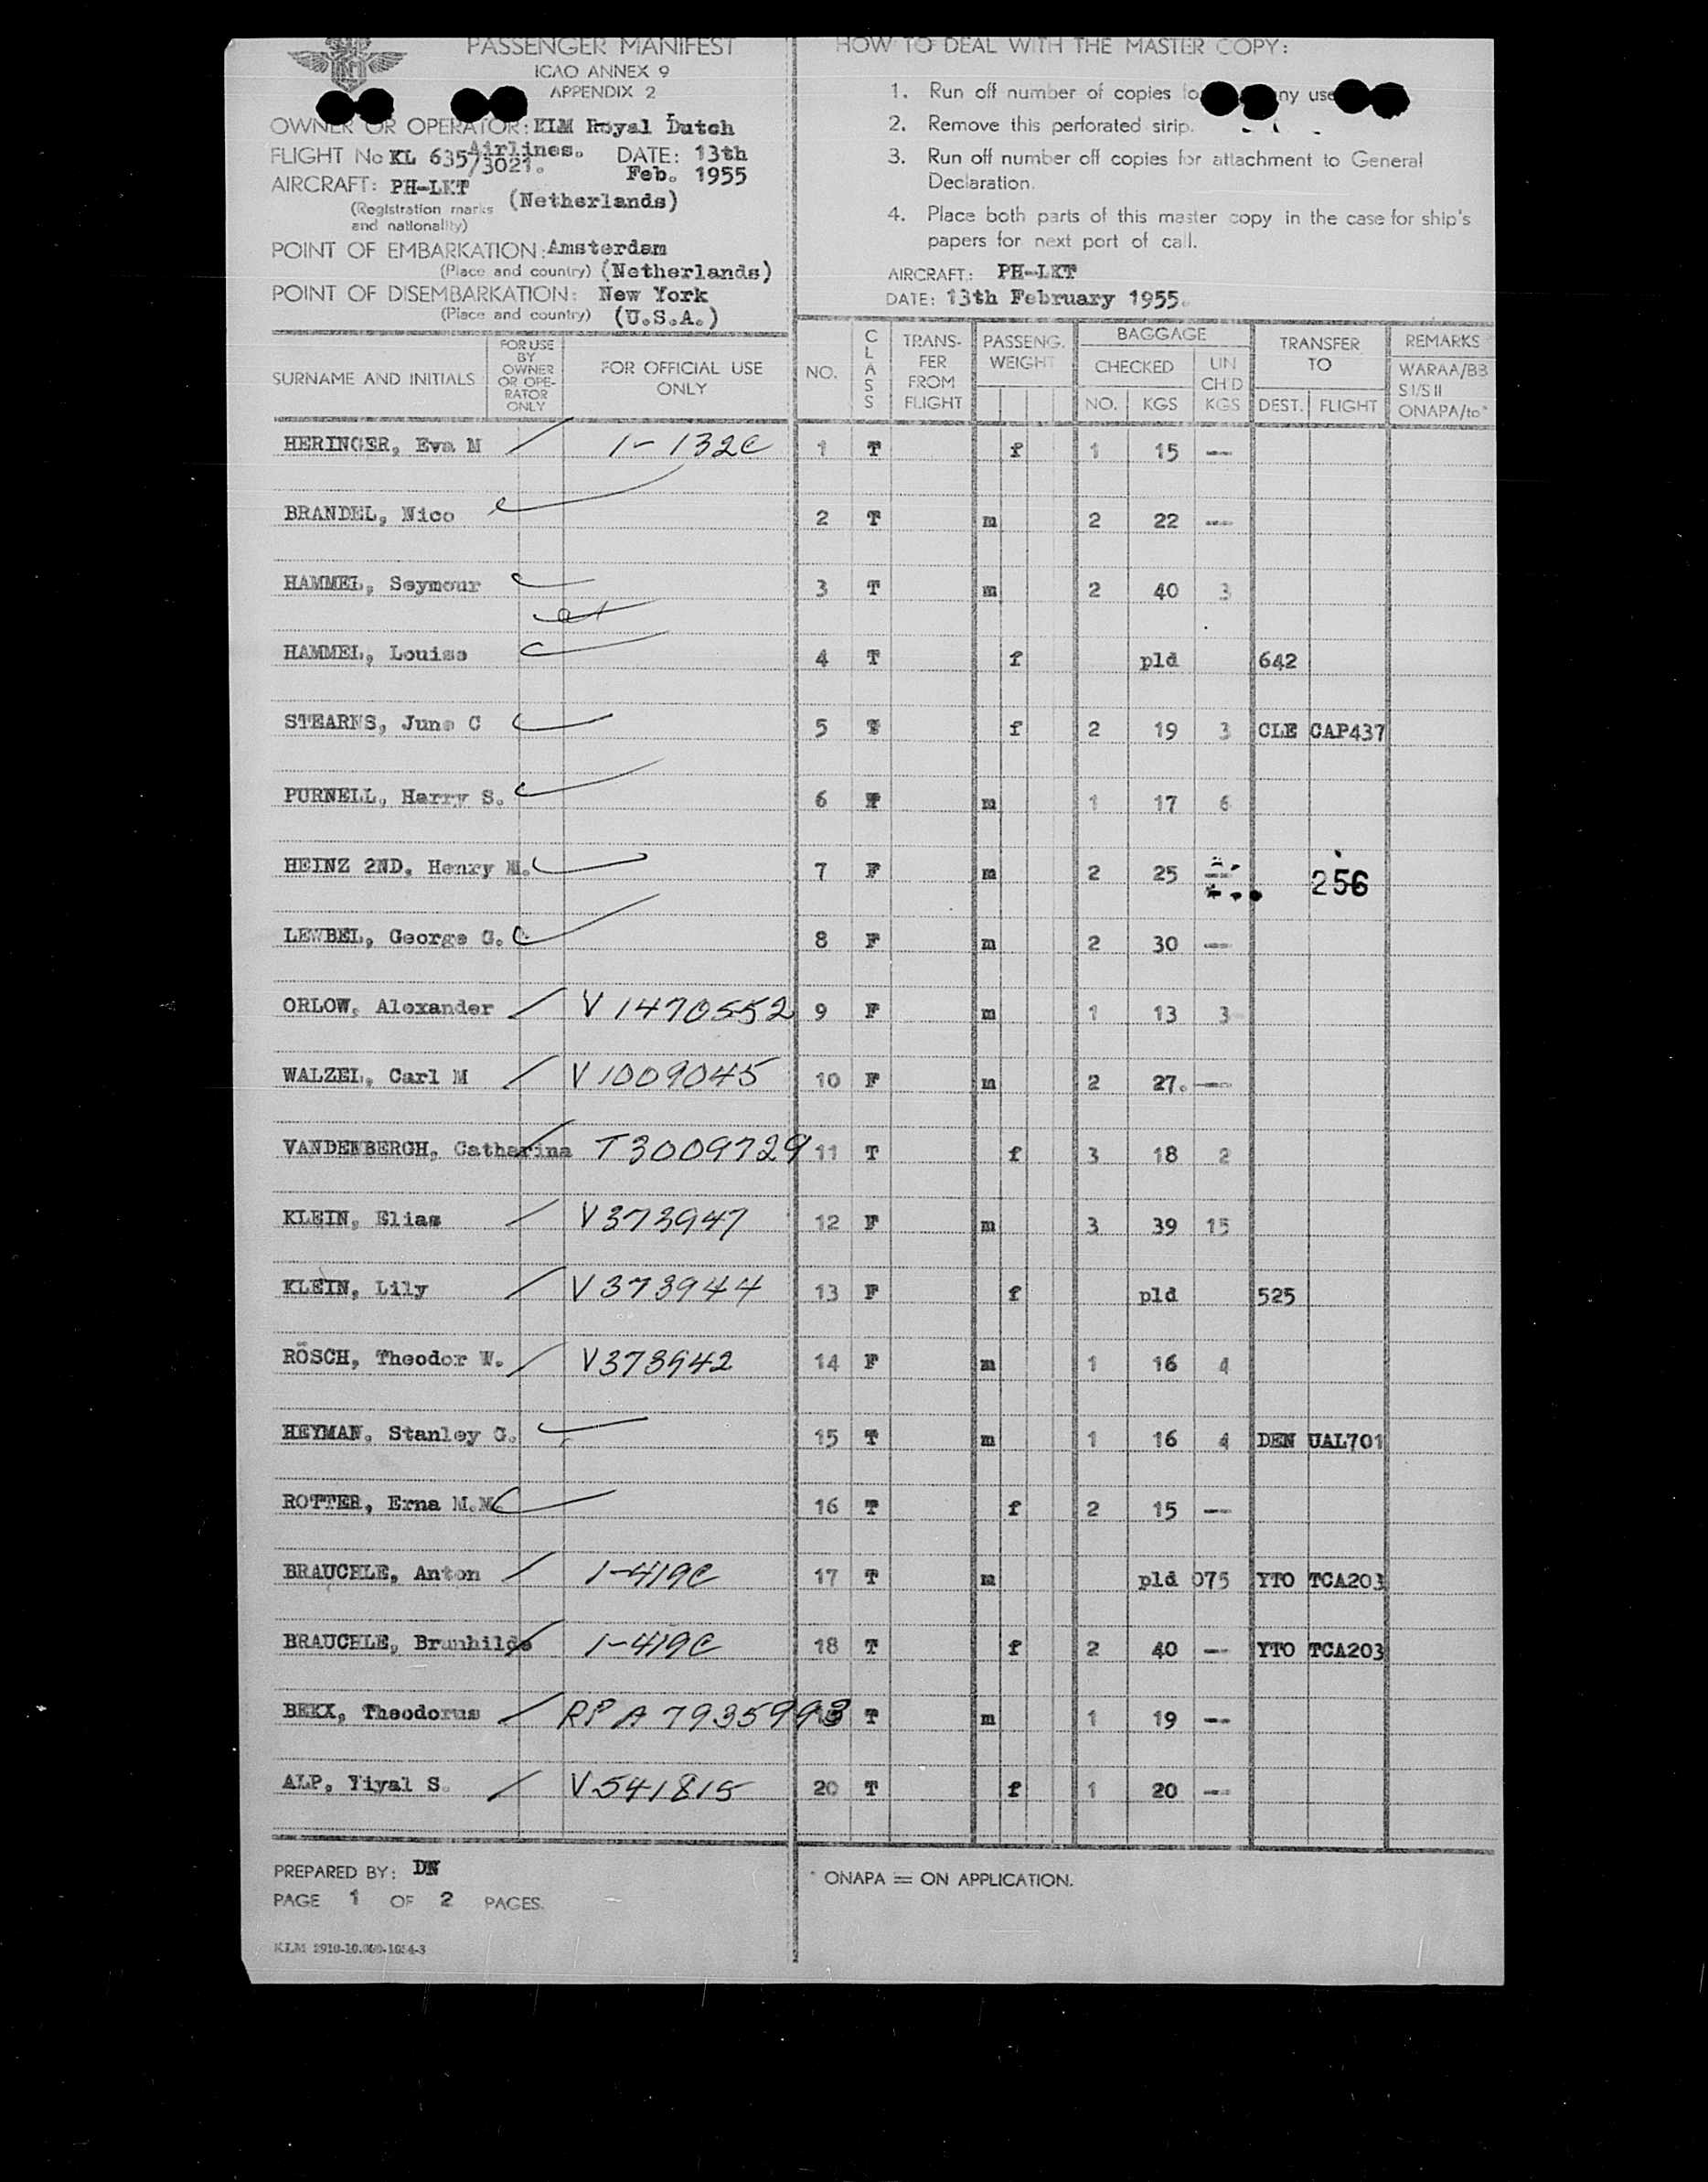 PASSENGER MANIFEST
ICAO ANNEX 9
APPENDIX 2
OWNER OR OPERATOR: KLM Royal Dutch
Airlines.
FLIGHT No KL 635/3021. DATE: 13th
Feb. 1955
AIRCRAFT: PH-LKT
(Netherlands)
(Registration marks
and nationality)
POINT OF EMBARKATION: Amsterdam
(Place and country) (Netherlands)
POINT OF DISEMBARKATION: New York
(Place and country) (U.S.A.)
HOW TO DEAL WITH THE MASTER COPY:
1. Run off number of copies use
2. Remove this perforated strip.
3. Run off number off copies for attachment to General
Declaration.
4. Place both parts of this master copy in the case for ship's
papers for next port of call.
AIRCRAFT: PH-LKT
DATE: 13th February 1955.
SURNAME AND INITIALS FOR USE BY OWNER OR OPE- RATOR ONLY FOR OFFICIAL USE ONLY NO. CLASS TRANS- FER FROM FLIGHT PASSENG. WEIGHT BAGGAGE CHECKED NO. KGS UN CH'D KGS TRANSFER TO DEST. FLIGHT REMARKS WARAA/BB SI/SII ONAPA/to*
HERINGER, Eva M / 1-132C 1 T f 1 15 --
BRANDEL, Nico 2 T m 2 22 --
HAMMEL, Seymour 3 T m 2 40 3
HAMMEL, Louise 4 T f pld 642
STEARNS, June C 5 T f 2 19 3 CLE CAP437
PURNELL, Harry S. 6 T m 1 17 6
HEINZ 2ND, Henry M. 7 F m 2 25 256
LEWBEL, George G. 8 F m 2 30 --
ORLOW, Alexander / V1470552 9 F m 1 13 3
WALZEL, Carl M / V1009045 10 F m 2 27. --
VANDENBERGH, Catharina / T3009729 11 T f 3 18 2
KLEIN, Elias / V373947 12 F m 3 39 15
KLEIN, Lily / V373944 13 F f pld 525
RÖSCH, Theodor W. / V373942 14 F m 1 16 4
HEYMAN, Stanley G. 15 T m 1 16 4 DEN UAL701
ROTTER, Erna M.M. 16 T f 2 15 --
BRAUCHLE, Anton / 1-419C 17 T m pld 075 YTO TCA203
BRAUCHLE, Brunhilde / 1-419C 18 T f 2 40 -- YTO TCA203
BEKX, Theodorus / RP A 7935993 T m 1 19 --
ALP, Yiyal S. / V541815 20 T f 1 20 --
PREPARED BY: DN
PAGE 1 OF 2 PAGES.
* ONAPA = ON APPLICATION.